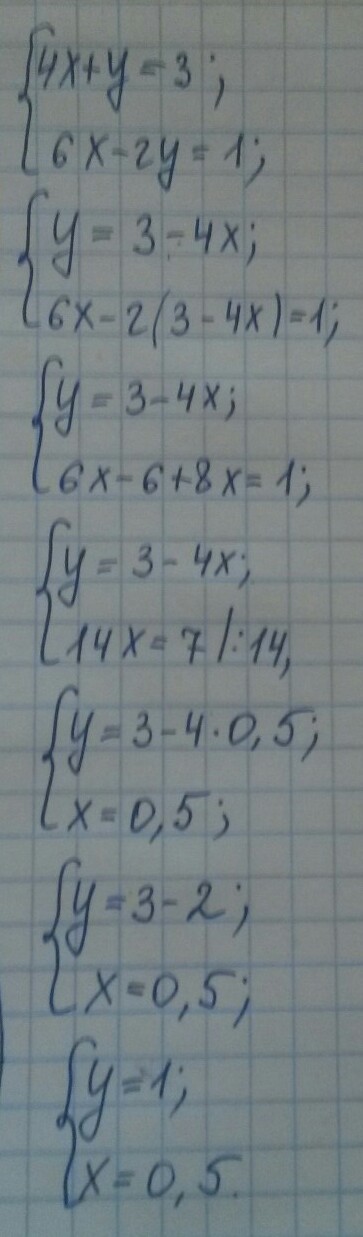 4x+y=3;
6x-2y=1;
y=3-4x;
6x-2(3-4x)=1;
y=3-4x;
6x-6+8x=1;
y=3-4x;
14x=7|:14,
y=3-4·0,5;
x=0,5;
y=3-2;
x=0,5;
y=1;
x=0,5.